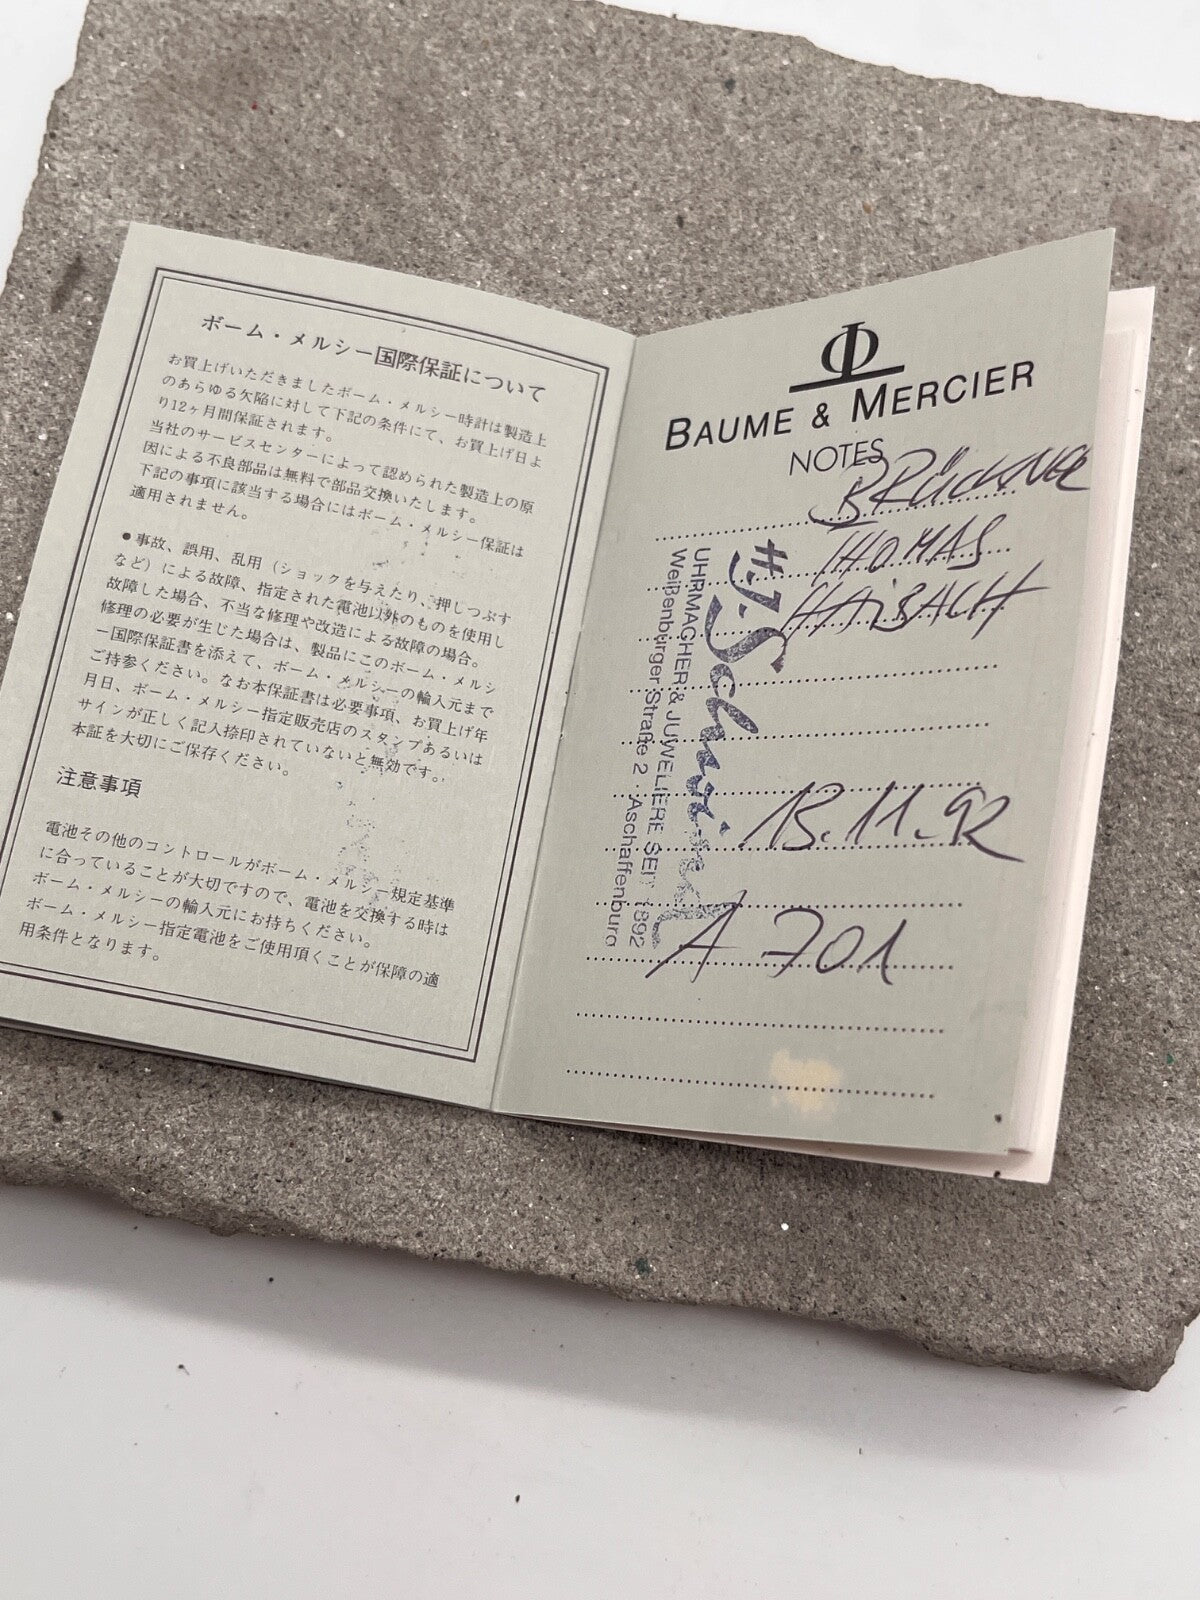 ボーム・メルシー国際保証について
お買上げいただきましたボーム・メルシー時計は製造上
のあらゆる欠陥に対して下記の条件にて、お買上げ日よ
り12ヶ月間保証されます。
当社のサービスセンターによって認められた製造上の原
因による不良部品は無料で部品交換いたします。
下記の事項に該当する場合にはボーム・メルシー保証は
適用されません。
●事故、誤用、乱用（ショックを与えたり、押しつぶす
など）による故障、指定された電池以外のものを使用し
故障した場合、不当な修理や改造による故障の場合。
修理の必要が生じた場合は、製品にこのボーム・メルシ
ー国際保証書を添えて、ボーム・メルシーの輸入元まで
ご持参ください。なお本保証書は必要事項、お買上げ年
月日、ボーム・メルシー指定販売店のスタンプあるいは
サインが正しく記入捺印されていないと無効です。
本証を大切にご保存ください。
注意事項
電池その他のコントロールがボーム・メルシー規定基準
に合っていることが大切ですので、電池を交換する時は
ボーム・メルシーの輸入元にお持ちください。
ボーム・メルシー指定電池をご使用頂くことが保障の適
用条件となります。
BAUME & MERCIER
NOTES
BRÜCKNER
THOMAS
HAiBACH
13.11.92
A 701
UHRMACHER & JUWELIERE SEIT 1892
Weißenburger Straße 2 · Aschaffenburg